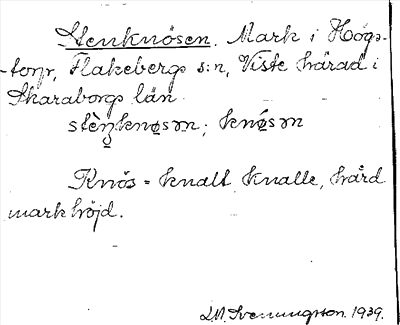 Stenknösen. Mark i Högs-
-torp, Flakebergs s:n, Viste härad i
Skaraborgs län.
stèŋknøsɷn; knǿsɷn
Knös = knalt knalle, hård
mark höjd.
L.M. Svenungsson. 1939.